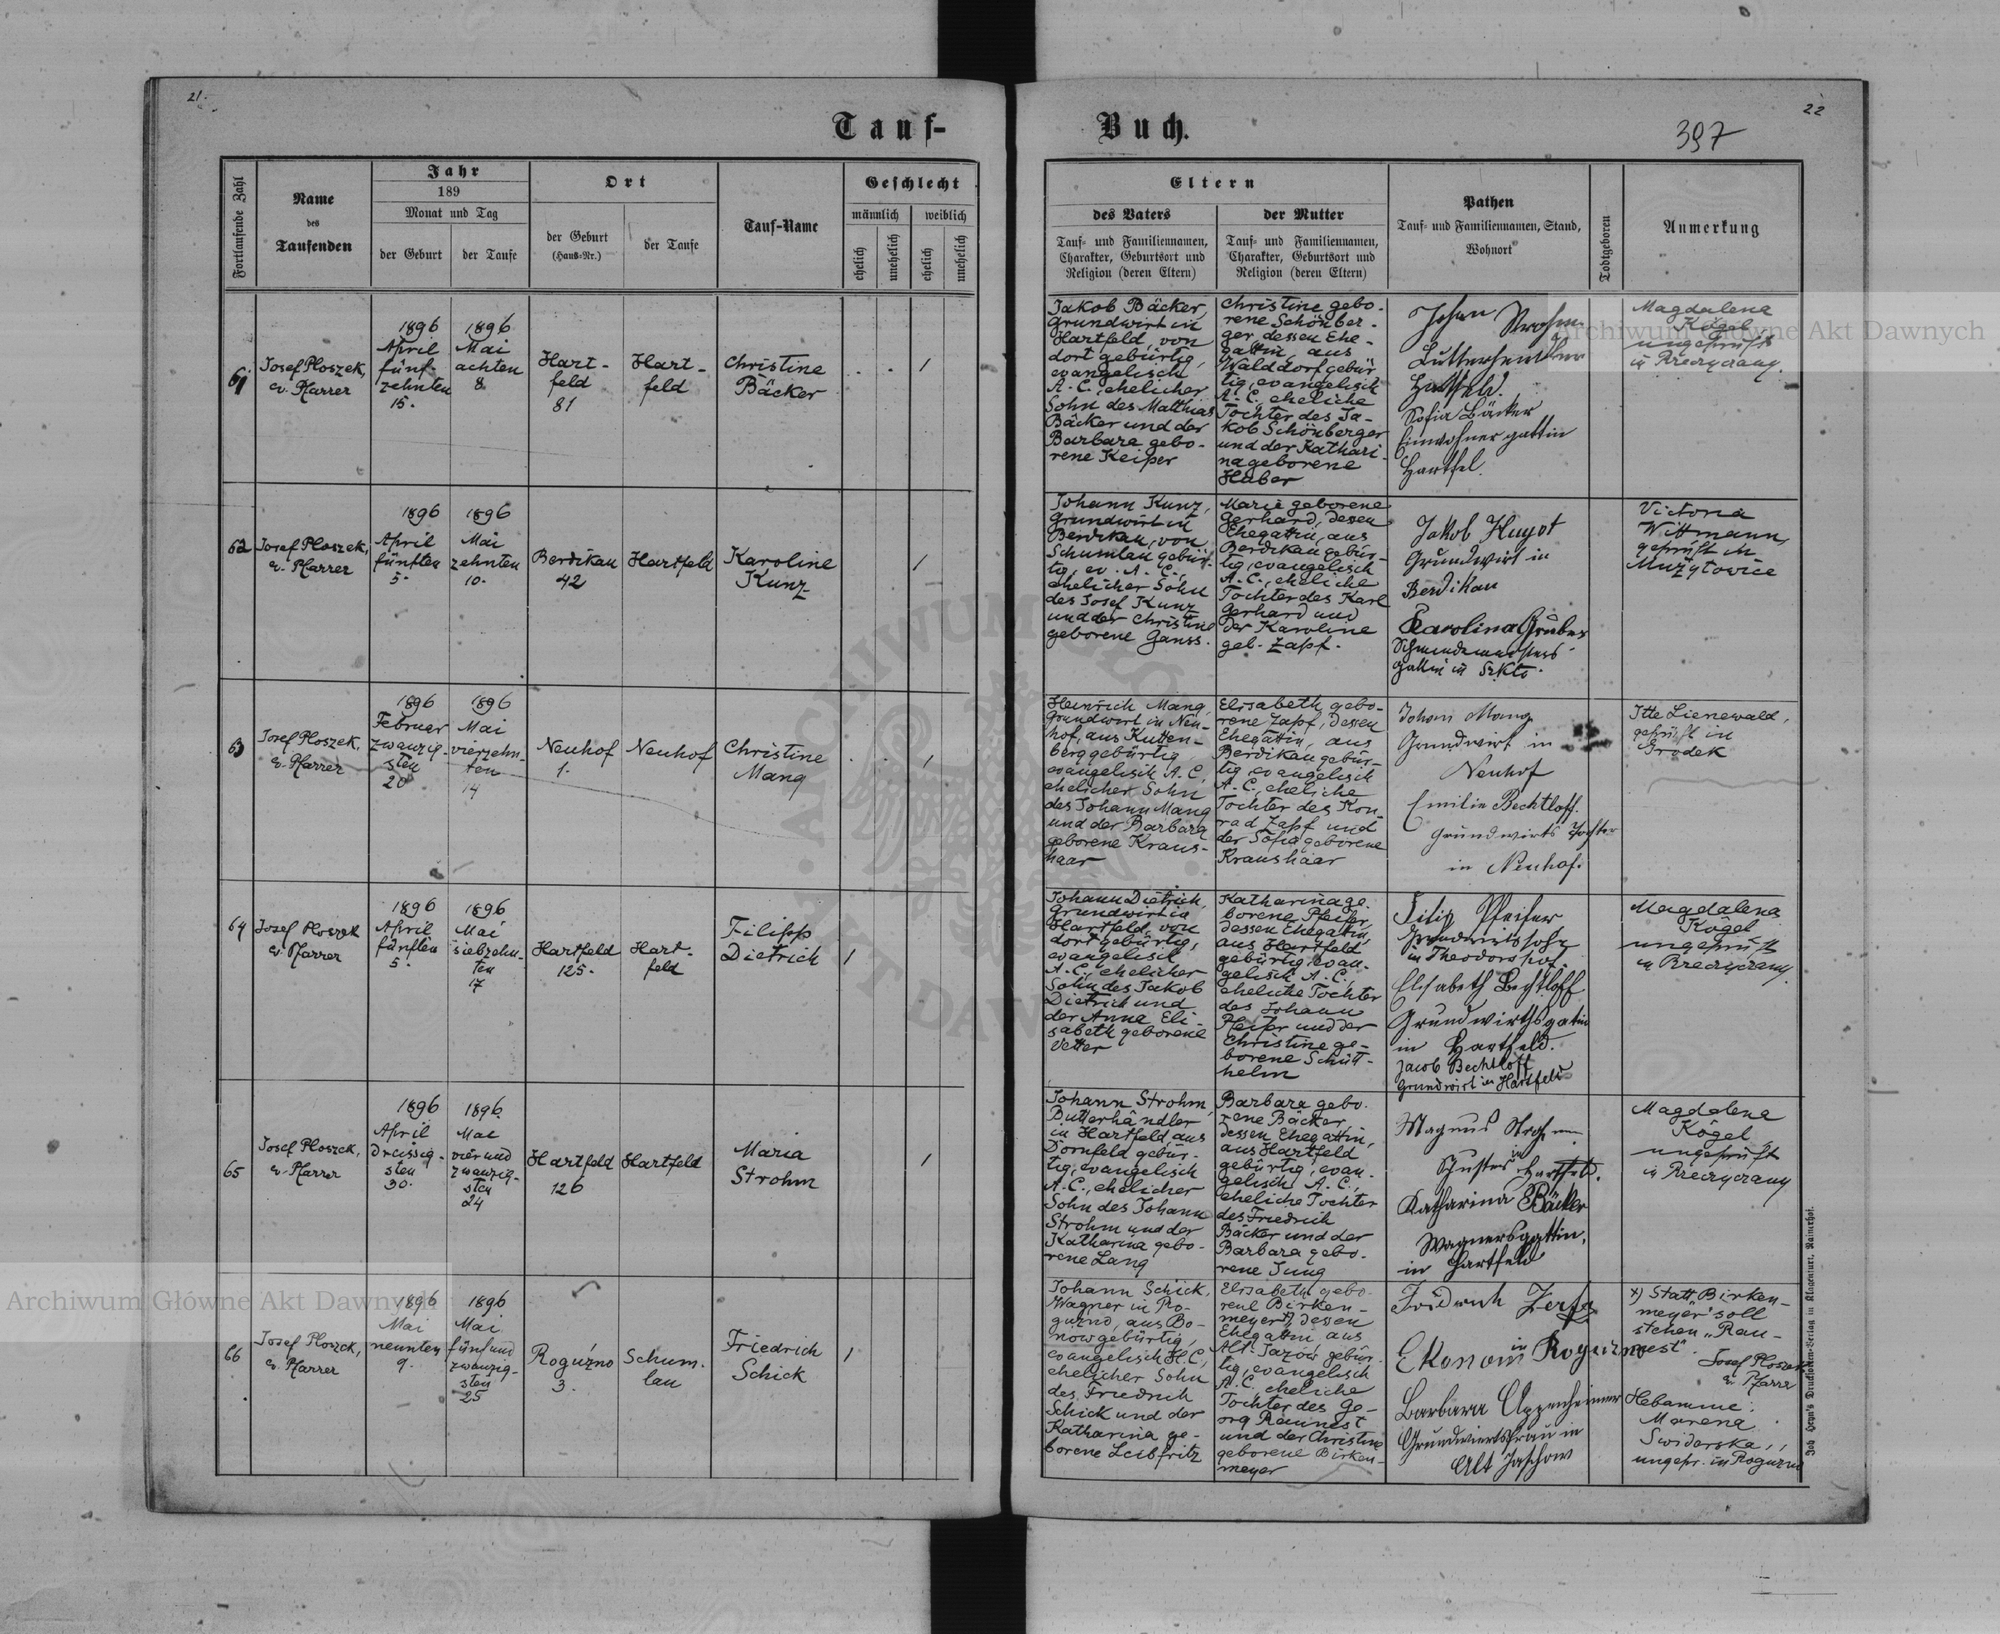 21.
22
Tauf-
Buch.
397
Fortlaufende Zahl
Name
des
Taufenden
Jahr
189
Monat und Tag
der Geburt
der Taufe
Ort
der Geburt
(Haus-Nr.)
der Taufe
Tauf-Name
Geschlecht
männlich
weiblich
ehelich
unehelich
ehelich
unehelich
Eltern
des Vaters
Tauf- und Familiennamen,
Charakter, Geburtsort und
Religion (deren Eltern)
der Mutter
Tauf- und Familiennamen,
Charakter, Geburtsort und
Religion (deren Eltern)
Pathen
Tauf- und Familiennamen, Stand,
Wohnort
Todtgeboren
Anmerkung
61
Josef Ploszek,
ev. Pfarrer
1896
April
fünf-
zehnten
15.
1896
Mai
achten
8
Hart-
feld
81
Hart-
feld
Christine
Bäcker
1
Jakob Bäcker,
Grundwirt in
Hartfeld, von
dort gebürtig,
evangelisch
A. C., ehelicher
Sohn des Matthias
Bäcker und der
Barbara gebo-
rene Keiper
Christine gebo-
rene Schönber-
ger dessen Ehe-
gattin, aus
Walddorf gebür
tig, evangelisch
A. C., eheliche
Tochter des Ja-
kob Schönberger
und der Kathari-
na geborene
Huber
Johan Strohm
Hartfeld.
Sofia Bäcker
Einwohnergattin
Hartfel.
Magdalena
Kögel
ungeprüft
in
62
Josef Ploszek,
ev. Pfarrer
1896
April
fünften
5.
1896
Mai
zehnten
10.
Berdikau
42
Hartfeld
Karoline
Kunz
1
Johann Kunz,
Grundwirt in
Berdikau, von
Schumlau gebür-
tig, ev. A. C.,
ehelicher Sohn
des Josef Kunz
und der Christine
geborene Ganss.
Marie geborene
Gerhard, dessen
Ehegattin, aus
Berdikau gebür-
tig, evangelisch
A. C., eheliche
Tochter des Karl
Gerhard und
der Karoline
geb. Zapf.
Jakob Huyot
Grundwirt in
Berdikau
Karolina Gruber
gattin in
Victoria
Wittmann,
geprüft in
Mużyłowice
63
Josef Ploszek,
ev. Pfarrer
1896
Februar
zwanzig-
sten
20
1896
Mai
vierzehn-
ten
14
Neuhof
1.
Neuhof
Christine
Mang
1
Heinrich Mang,
Grundwirt in Neu-
hof, aus Kutten-
berg gebürtig
evangelisch A. C.,
ehelicher Sohn
des Johann Mang
und der Barbara
geborene Kraus-
haar
Elisabeth gebo-
rene Zapf, dessen
Ehegattin, aus
Berdikau gebür-
tig, evangelisch
A. C., eheliche
Tochter des Kon-
rad Zapf und
der Sofia geborene
Kraushaar
Johan Mang
Grundwirt in
Neuhof
Emilie Bechtloff
Grundwirts Tochter
in Neuhof.
Itte Lienewald,
geprüft in
Grodek
64
Josef Ploszek
ev. Pfarrer
1896
April
fünften
5.
1896
Mai
siebzehn-
ten
17
Hartfeld
125.
Hart-
feld
Filipp
Dietrich
1
Johann Dietrich,
Grundwirt in
Hartfeld, von
dort gebürtig,
evangelisch
A. C., ehelicher
Sohn des Jakob
Dietrich und
der Anna Eli-
sabeth geborene
Vetter
Katharina ge-
borene Pfeifer,
dessen Ehegattin,
aus Hartfeld
gebürtig, evan-
gelisch A. C.,
eheliche Tochter
des Johann
Pfeifer und der
Christine ge-
borene Schütt-
helm
Filip Pfeifer
Grundwirtssohn
in Theodorshof.
Elisabeth Bechtloff
Grundwirthsgatin
in Hartfeld.
Jacob Bechtloff
Grundwirt in Hartfeld
Magdalena
Kögel
ungeprüft
in
65
Josef Ploszek,
ev. Pfarrer
1896
April
dreissig-
sten
30.
1896
Mai
vier und
zwanzig-
sten
24
Hartfeld
126
Hartfeld
Maria
Strohm
1
Johann Strohm,
Butterhändler
in Hartfeld, aus
Dornfeld gebür-
tig, evangelisch
A. C., ehelicher
Sohn des Johann
Strohm und der
Katharina gebo-
rene Lang
Barbara gebo-
rene Bäcker,
dessen Ehegattin,
aus Hartfeld
gebürtig, evan-
gelisch A. C.,
eheliche Tochter
des Friedrich
Bäcker und der
Barbara gebo-
rene Jung
Magnus Strohm
Schuster in Hartfeld.
Katharina Bäcker
Wagnersgattin,
in Hartfeld
Magdalena
Kögel,
ungeprüft
in
66
Josef Ploszek,
ev. Pfarrer
1896
Mai
neunten
9.
1896
Mai
fünf und
zwanzig-
sten
25
Roguzno
3.
Schum-
lau
Friedrich
Schick
1
Johann Schick,
Wagner in Ro-
guzno, aus Bo-
now gebürtig,
evangelisch H. C.,
ehelicher Sohn
des Friedrich
Schick und der
Katharina ge-
borene Leibfritz
Elisabeth gebo-
rene Birken-
meyer x) dessen
Ehegattin aus
Alt-Jazow gebür-
tig, evangelisch
A. C. eheliche
Tochter des Ge-
org Raunest
und der Christine
geborene Birken-
meyer
Fridrich
Ekonom in Roguzno
Barbara Appenheimer
Grundwirtsfrau in
Alt Jaschow
x) Statt „Birken-
meyer" soll
stehen „Rau-
nest".
Josef Ploszek
ev. Pfarrer
Hebamme:
Marena
Swiderska,
ungepr. in Roguzno
Joh. Heyn's Drucksorten-Verlag in Klagenfurt, Rainerhof.
Archiwum Główne Akt Dawnych
Archiwum Główne Akt Dawnych
ARCHIWUM GŁÓWNE AKT DAWNYCH